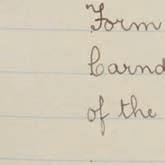 "Form
Carnd
of the